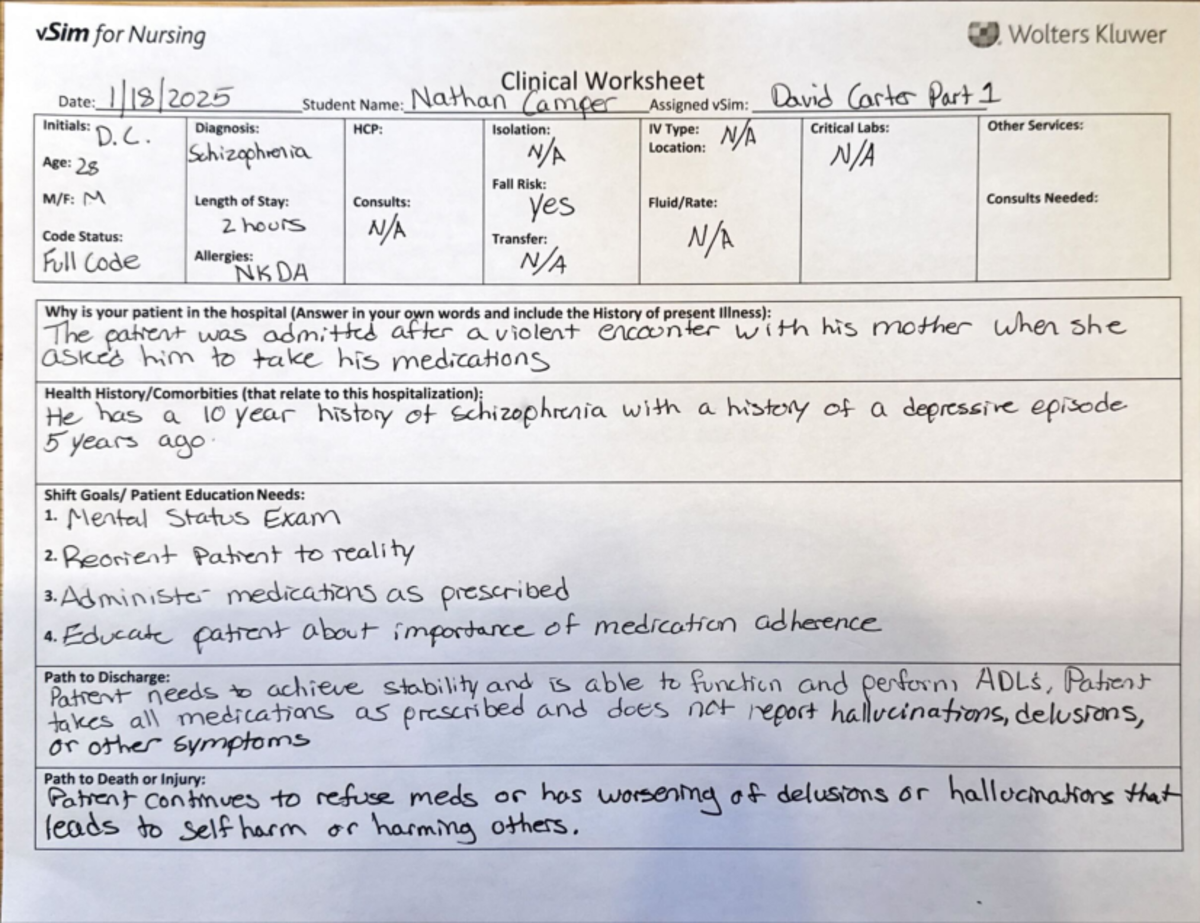 vSim for Nursing
Wolters Kluwer
Clinical Worksheet
Date: 1/18/2025 Student Name: Nathan Camper Assigned vSim: David Carter Part 1
Initials: D.C.
Age: 28
M/F: M
Code Status:
Full Code
Diagnosis:
Schizophrenia
Length of Stay:
2 hours
Allergies:
NKDA
HCP:
Consults:
N/A
Isolation:
N/A
Fall Risk:
yes
Transfer:
N/A
IV Type: N/A
Location:
Fluid/Rate:
N/A
Critical Labs:
N/A
Other Services:
Consults Needed:
Why is your patient in the hospital (Answer in your own words and include the History of present Illness):
The patient was admitted after a violent encounter with his mother when she
asked him to take his medications
Health History/Comorbities (that relate to this hospitalization):
He has a 10 year history of schizophrenia with a history of a depressive episode
5 years ago.
Shift Goals/ Patient Education Needs:
1. Mental Status Exam
2. Reorient Patient to reality
3. Administer medications as prescribed
4. Educate patient about importance of medication adherence
Path to Discharge:
Patient needs to achieve stability and is able to function and perform ADLs, Patient
takes all medications as prescribed and does not report hallucinations, delusions,
or other symptoms
Path to Death or Injury:
Patient continues to refuse meds or has worsening of delusions or hallucinations that
leads to self harm or harming others.